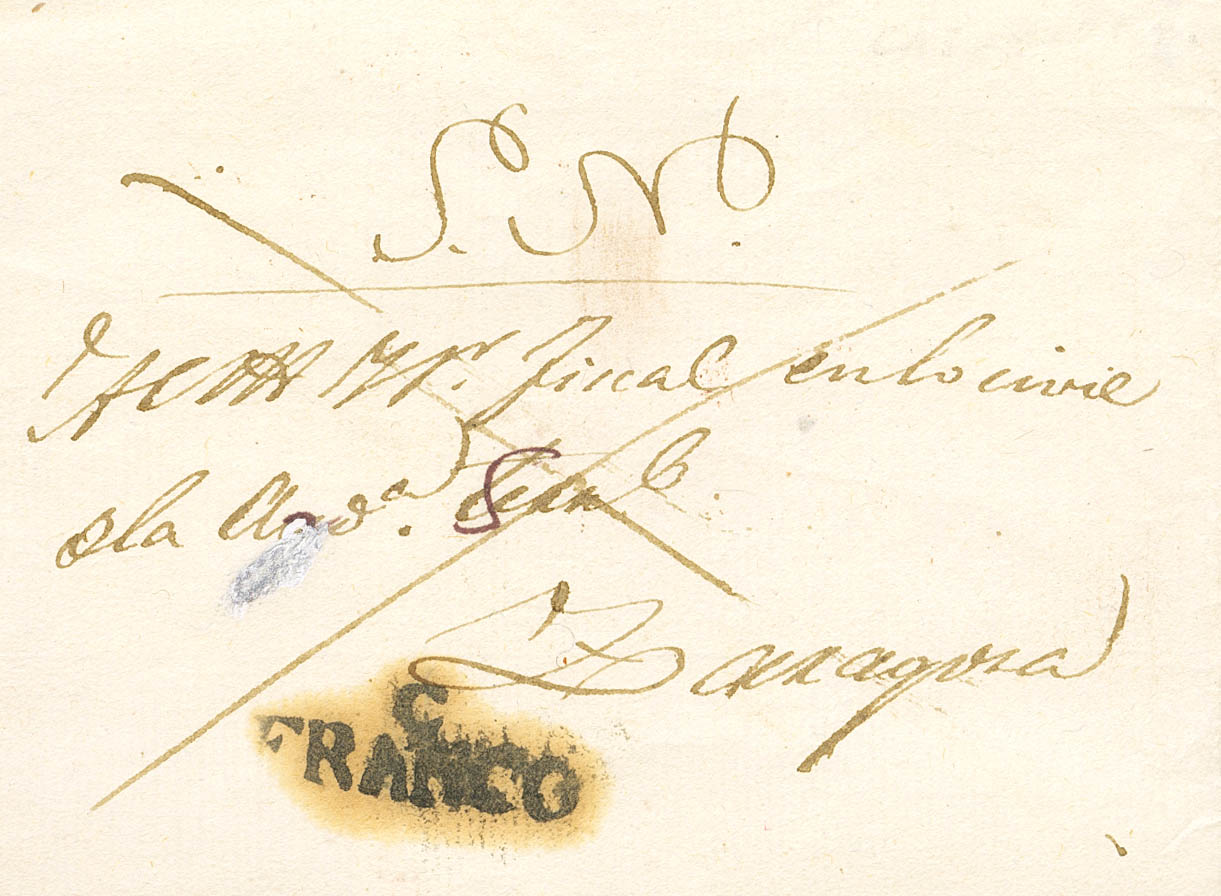 S. N.
Sr. Fiscal en lo civil
de la Aud.ª
Zaragoza
C.
FRANCO